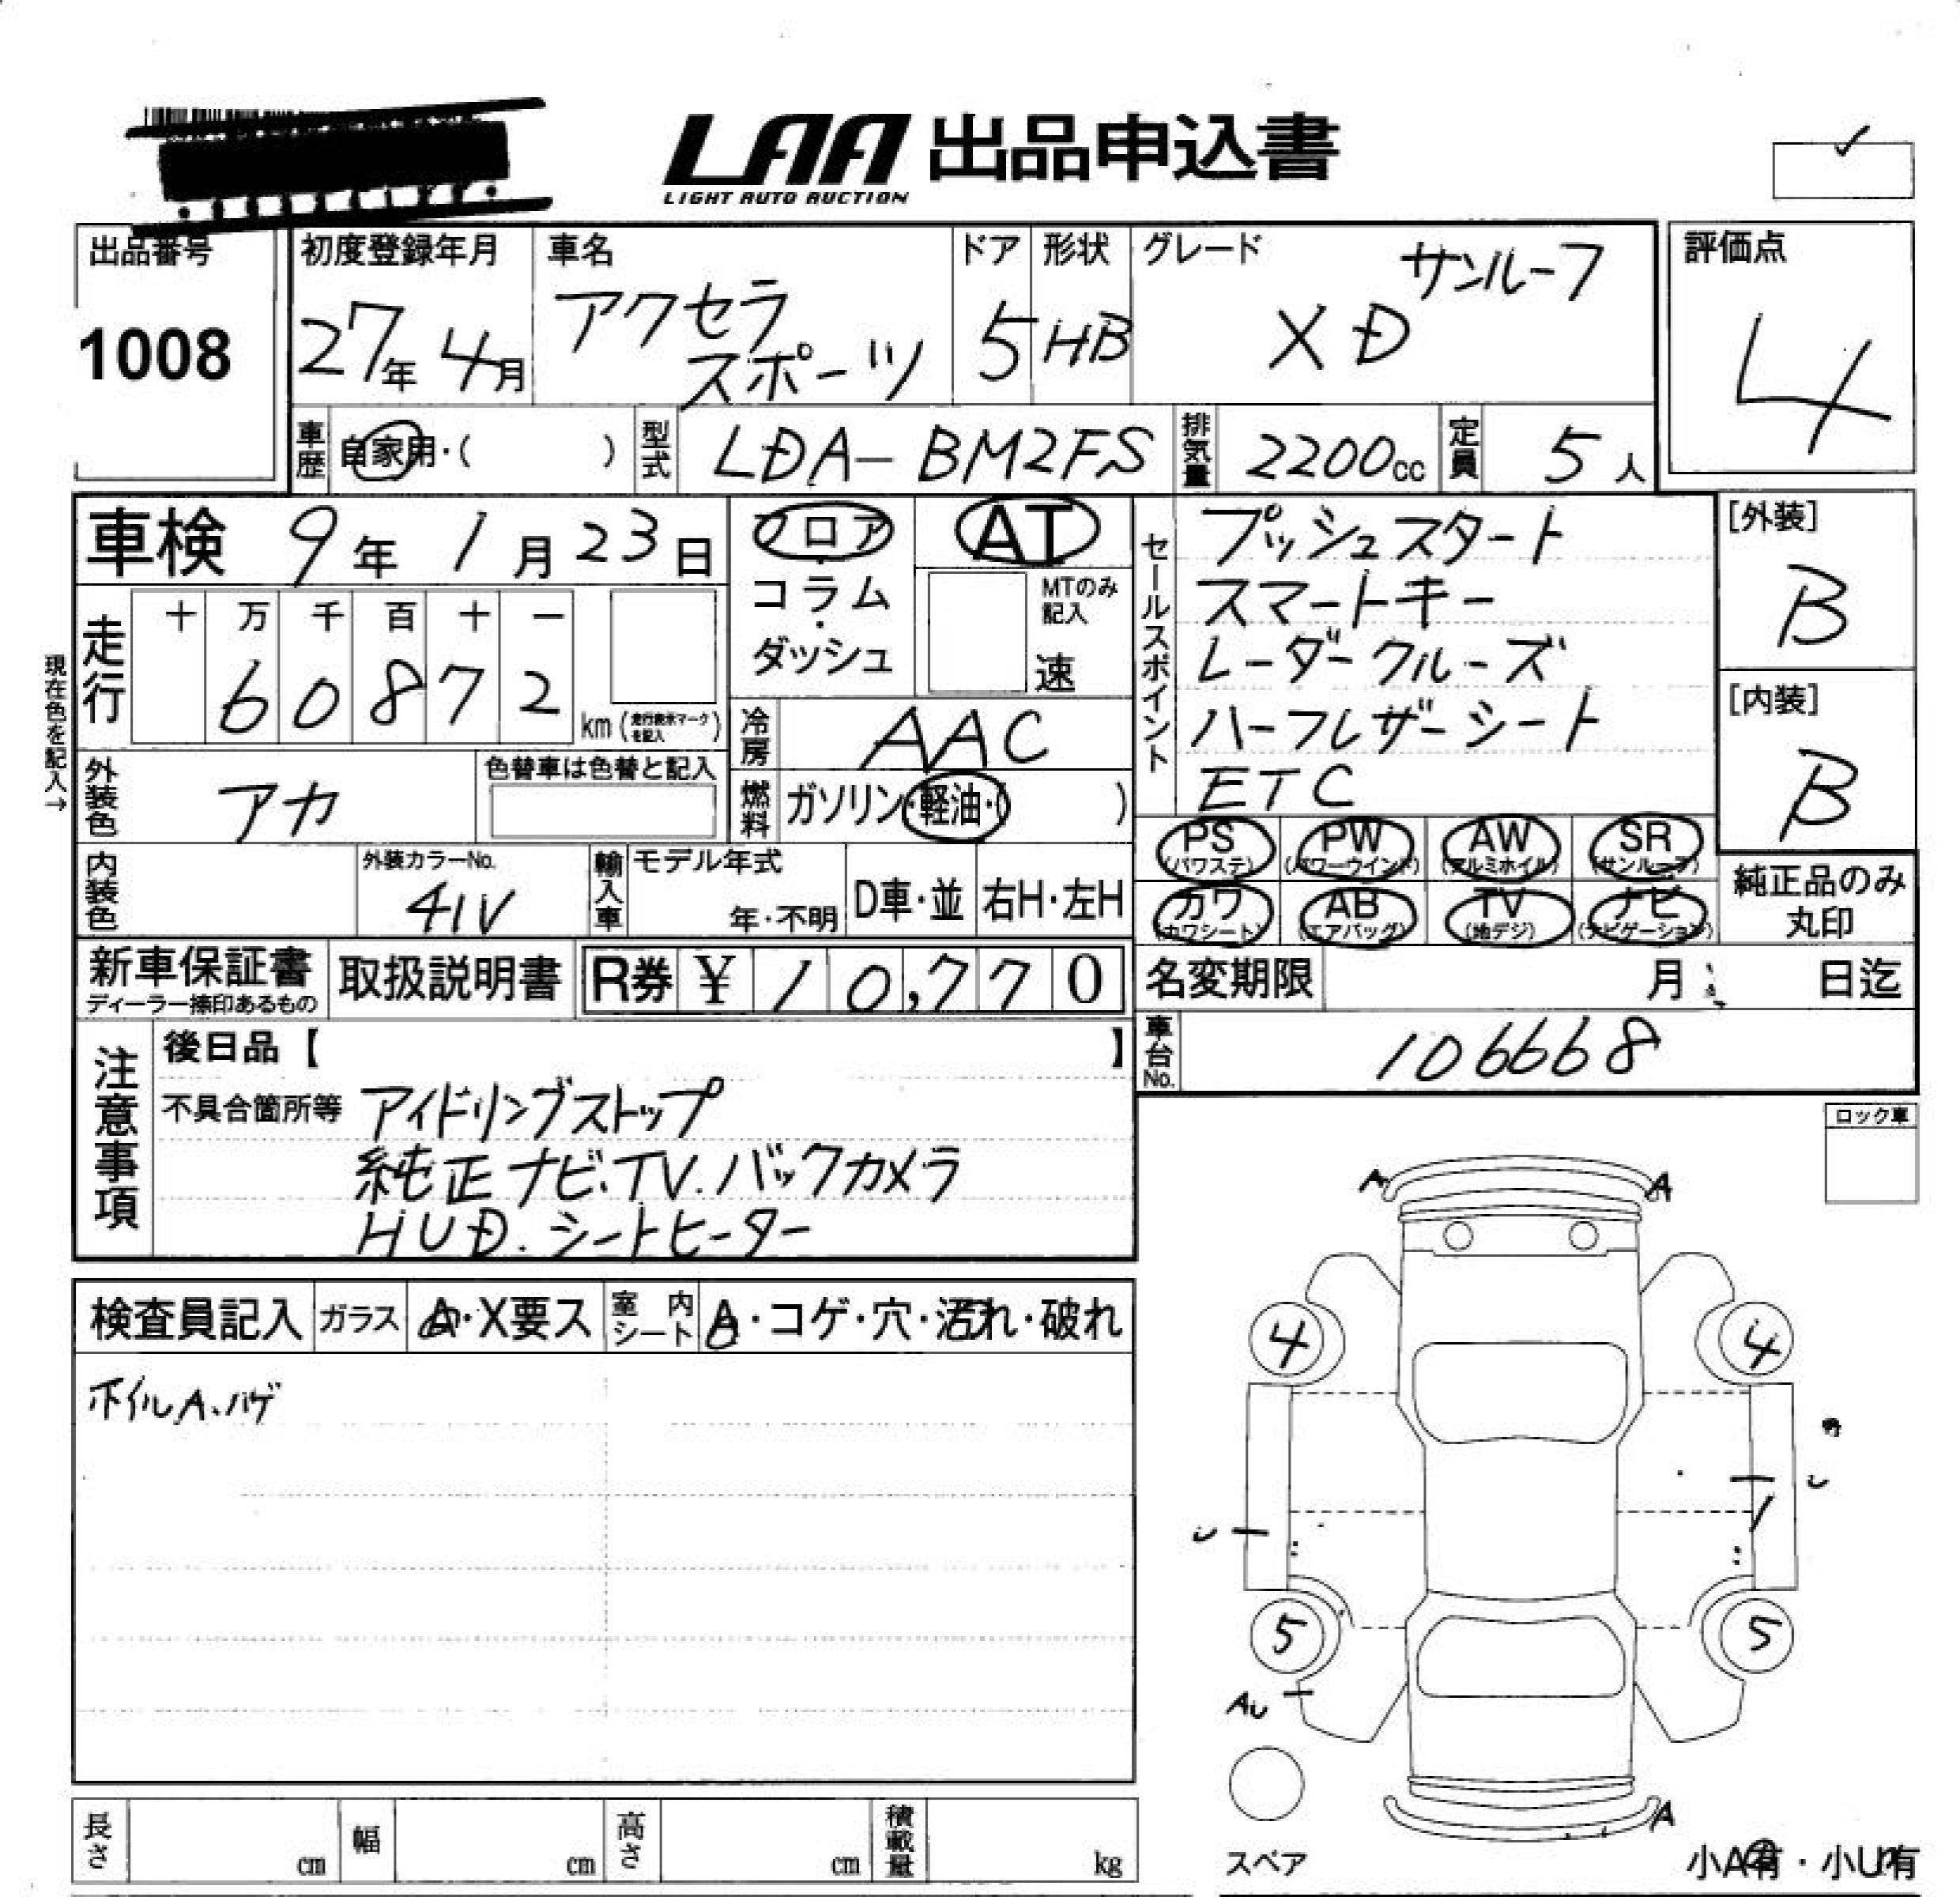 LAA 出品申込書
LIGHT AUTO AUCTION
出品番号
1008
初度登録年月
27年 4月
車名
アクセラ
スポーツ
ドア
5
形状
HB
グレード
サンルーフ
XD
評価点
4
車歴 自家用・( )
型式 LDA-BM2FS
排気量 2200cc
定員 5人
車検 9年 1月 23日
フロア・コラム・ダッシュ
AT
MTのみ記入
速
セールスポイント
プッシュスタート
スマートキー
レーダークルーズ
ハーフレザーシート
ETC
[外装]
B
[内装]
B
現在色を記入→
走行
十 万 千 百 十 一
6 0 8 7 2
km (走行表示マークを記入)
冷房 AAC
外装色 アカ
色替車は色替と記入
燃料 ガソリン・軽油・( )
PS (パワステ) PW (パワーウインド) AW (アルミホイル) SR (サンルーフ)
カワ (カワシート) AB (エアバッグ) TV (地デジ) ナビ (ナビゲーション)
純正品のみ
丸印
内装色
外装カラーNo.
41V
輸入車
モデル年式
年・不明
D車・並
右H・左H
新車保証書
ディーラー捺印あるもの
取扱説明書
R券 ¥10,770
名変期限 月 日迄
車台No. 106668
注意事項
後日品【 】
不具合箇所等 アイドリングストップ
純正ナビ、TV.バックカメラ
HUD.シートヒーター
ロック車
検査員記入 ガラス A・X要ス 室内シート A・コゲ・穴・汚れ・破れ
ホイルA、ハゲ
A A
4 4
U
U
5 5
AU
A
スペア
小A有・小U有
長さ cm 幅 cm 高さ cm 積載量 kg